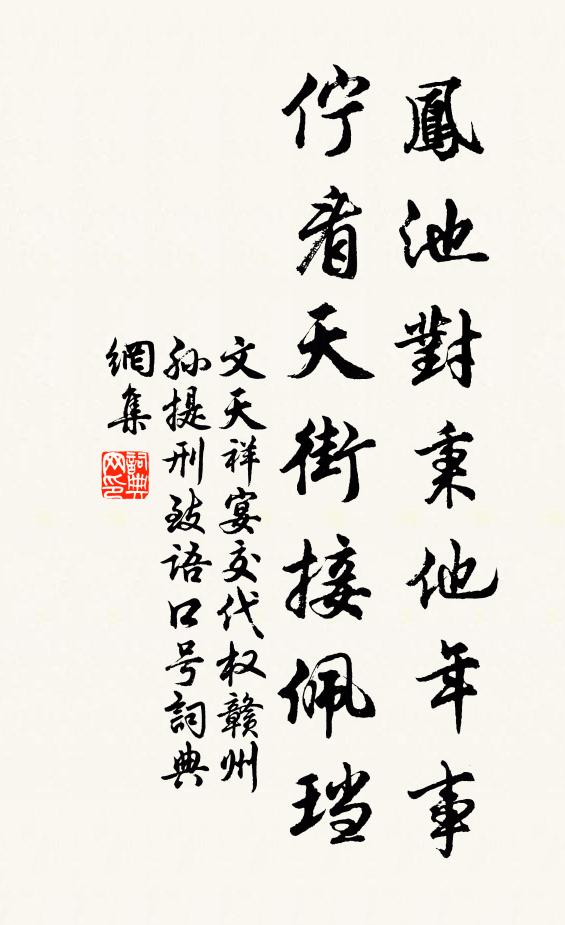 鳳池對秉他年事
佇看天街接佩珰
文天祥宴交代权赣州
孙提刑致语口号詞典
網集
詞典網印